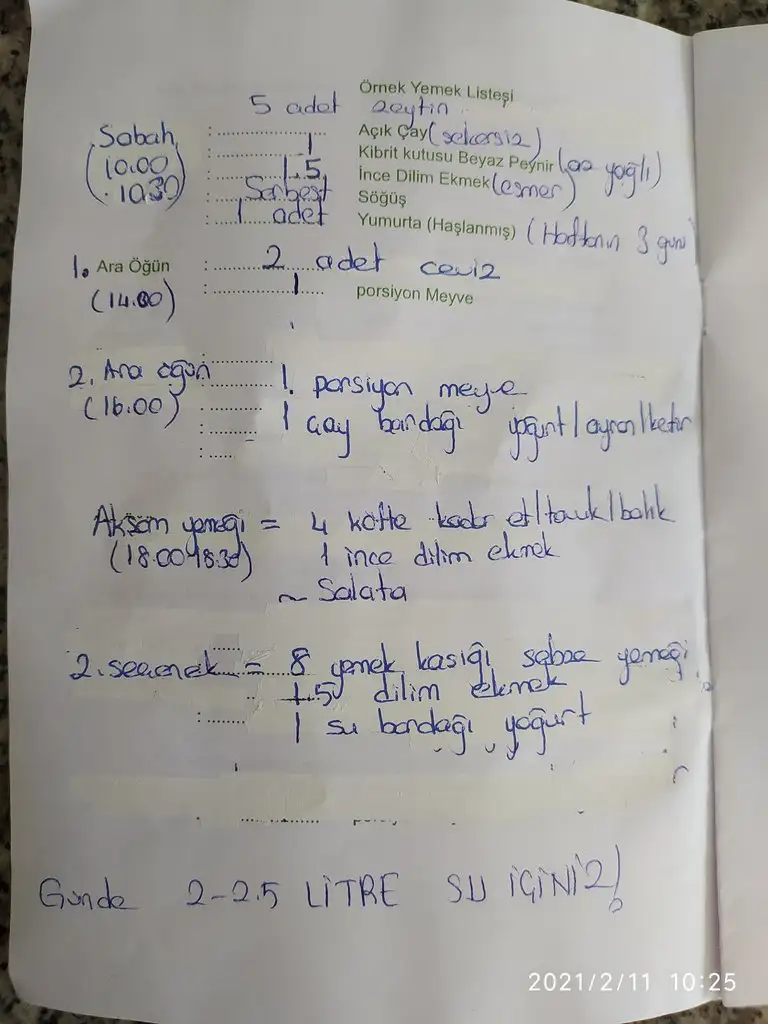 Örnek Yemek Listesi
5 adet zeytin
Sabah : .................... Açık Çay (şekersiz)
(10.00 : 1 Kibrit kutusu Beyaz Peynir (az yağlı)
10.30) : 1.5 İnce Dilim Ekmek (esmer)
: Serbest Söğüş
: 1 adet Yumurta (Haşlanmış) (Haftanın 3 günü
1. Ara Öğün : 2 adet ceviz
(14.00) : 1 porsiyon Meyve
2. Ara öğün 1. porsiyon meyve
(16.00) 1 çay bardağı yoğurt/ayran/kefir
Akşam yemeği = 4 köfte kadar et/tavuk/balık
(18.00-18.30) 1 ince dilim ekmek
~ Salata
2. seçenek = 8 yemek kaşığı sebze yemeği
1.5 dilim ekmek
1 su bardağı yoğurt
Günde 2-2.5 LİTRE SU İÇİNİZ!
2021/2/11 10:25